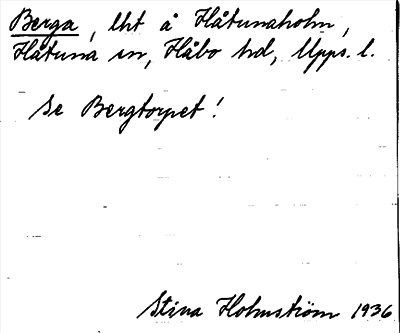 Berga, lht å Håtunaholm,
Håtuna sn, Håbo hd, Upps. l.
Se Bergtorpet!
Stina Holmström 1936